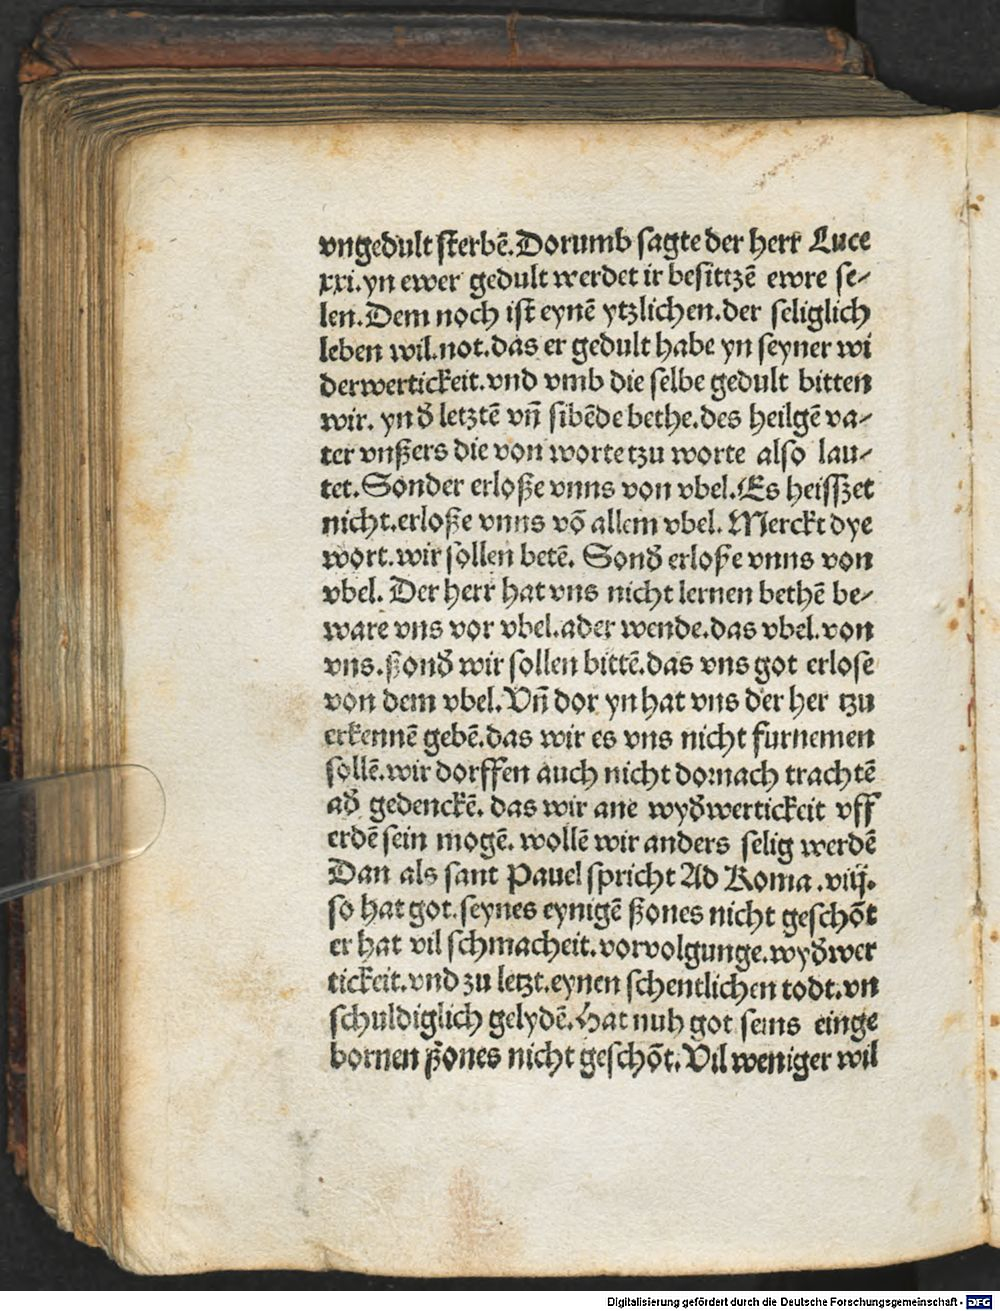 vngedult sterbē. Dorumb sagte der herr Luce
xxi. yn ewer gedult werdet ir besittzē ewre se⸗
len. Dem noch ist eynē ytzlichen. der seliglich
leben wil. not. das er gedult habe yn seyner wi
derwertickeit. vnd vmb die selbe gedult bitten
wir. yn đ letztē vn̄ sibēde bethe. des heilgē va⸗
ter vnßers die von worte tzu worte also lau⸗
tet. Sonder erloße vnns von vbel. Es heisszet
nicht. erloße vnns vō allem vbel. Merckt dye
wort. wir sollen betē. Sonđ erloße vnns von
vbel. Der herr hat vns nicht lernen bethē be⸗
ware vns vor vbel. ader wende. das vbel. von
vns. ßonđ wir sollen bittē. das vns got erlose
von dem vbel. Vn̄ dor yn hat vns der her tzu
erkennē gebē. das wir es vns nicht furnemen
sollē. wir dorffen auch nicht dornach trachtē
ađ gedenckē. das wir ane wyđwertickeit vff
erdē sein mogē. wollē wir anders selig werdē
Dan als sant Pauel spricht Ad Roma. viij.
so hat got. seynes eynigē ßones nicht geschōt
er hat vil schmacheit. vorvolgunge. wyđwer
tickeit. vnd zu letzt. eynen schentlichen todt. vn
schuldiglich gelydē. Hat nuh got seins einge
bornen ßones nicht geschōt. Vil weniger wil
Digitalisierung gefördert durch die Deutsche Forschungsgemeinschaft - DFG